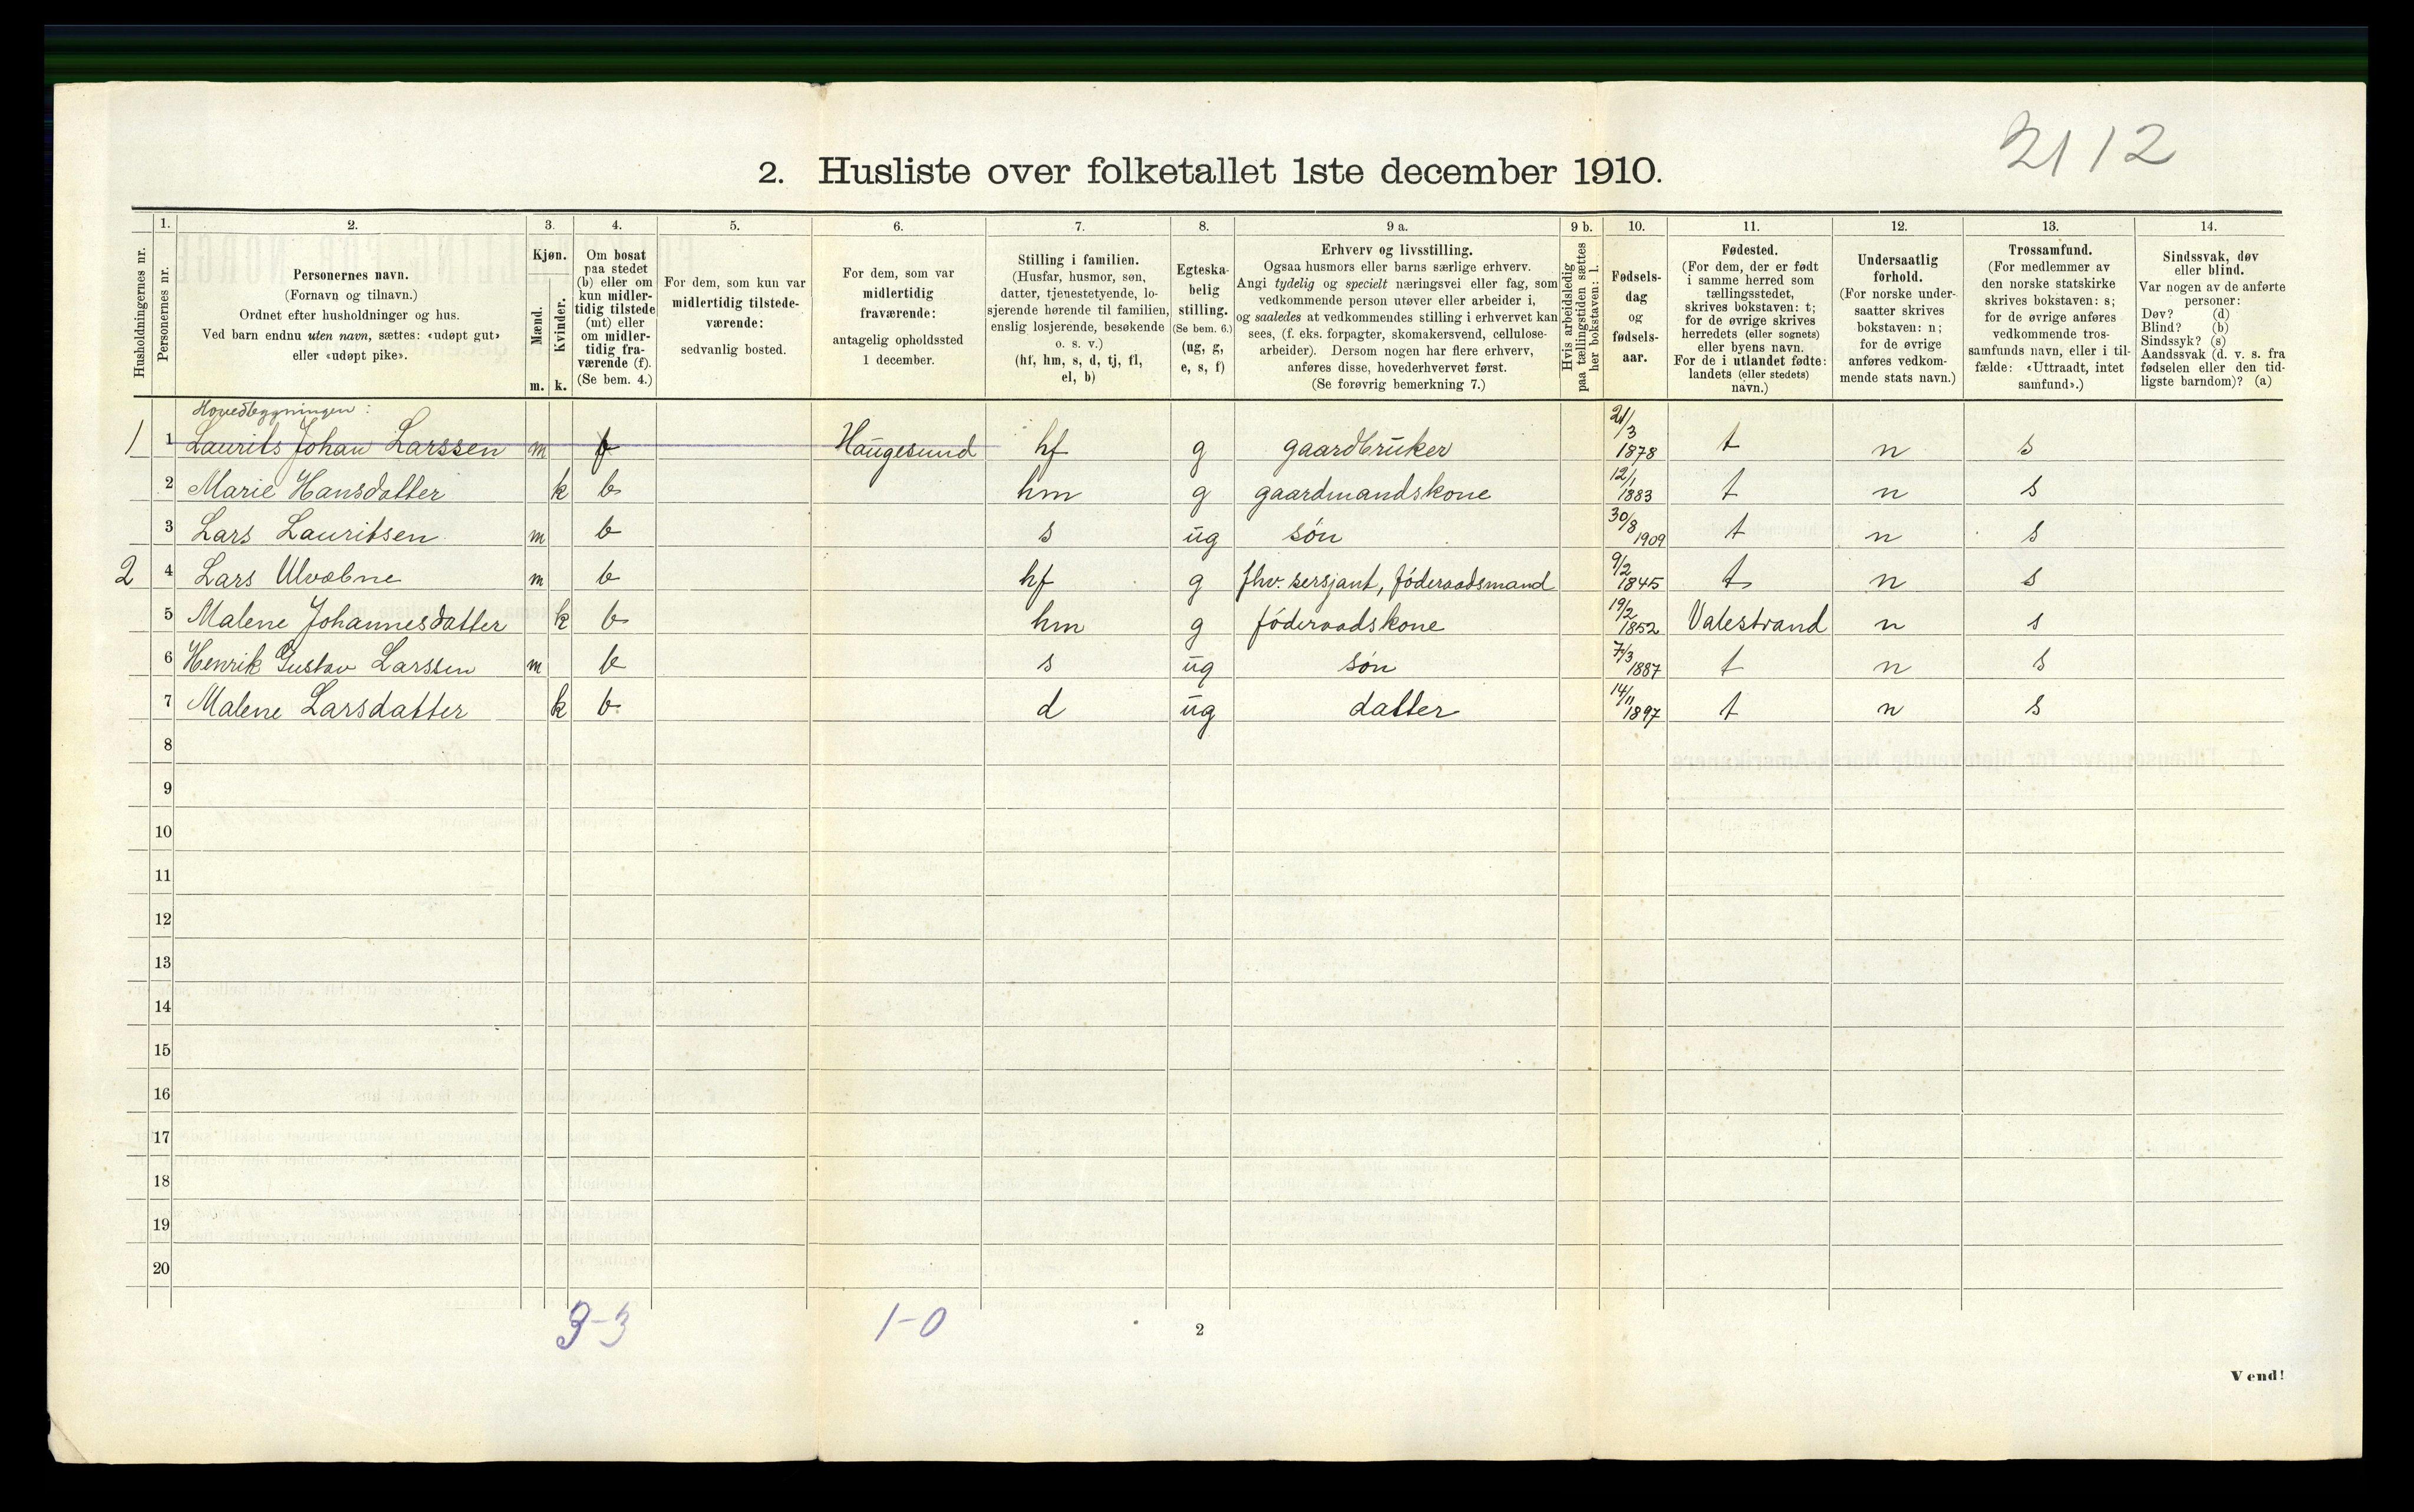 2112
2. Husliste over folketallet 1ste december 1910.
Husholdningernes nr.
1. Personernes nr.
2. Personernes navn. (Fornavn og tilnavn.) Ordnet efter husholdninger og hus. Ved barn endnu uten navn, sættes: «udøpt gut» eller «udøpt pike».
3. Kjøn. Mænd. m. Kvinder. k.
4. Om bosat paa stedet (b) eller om kun midlertidig tilstede (mt) eller om midlertidig fraværende (f). (Se bem. 4.)
5. For dem, som kun var midlertidig tilstedeværende: sedvanlig bosted.
6. For dem, som var midlertidig fraværende: antagelig opholdssted 1 december.
7. Stilling i familien. (Husfar, husmor, søn, datter, tjenestetyende, losjerende hørende til familien, enslig losjerende, besøkende o. s. v.) (hf, hm, s, d, tj, fl, el, b)
8. Egteskabelig stilling. (Se bem. 6.) (ug, g, e, s, f)
9 a. Erhverv og livsstilling. Ogsaa husmors eller barns særlige erhverv. Angi tydelig og specielt næringsvei eller fag, som vedkommende person utøver eller arbeider i, og saaledes at vedkommendes stilling i erhvervet kan sees, (f. eks. forpagter, skomakersvend, cellulosearbeider). Dersom nogen har flere erhverv, anføres disse, hovederhvervet først. (Se forøvrig bemerkning 7.)
9 b. Hvis arbeidsledig paa tællingstiden sættes her bokstaven: l.
10. Fødselsdag og fødselsaar.
11. Fødested. (For dem, der er født i samme herred som tællingsstedet, skrives bokstaven: t; for de øvrige skrives herredets (eller sognets) eller byens navn. For de i utlandet fødte: landets (eller stedets) navn.)
12. Undersaatlig forhold. (For norske undersaatter skrives bokstaven: n; for de øvrige anføres vedkommende stats navn.)
13. Trossamfund. (For medlemmer av den norske statskirke skrives bokstaven: s; for de øvrige anføres vedkommende trossamfunds navn, eller i tilfælde: «Uttraadt, intet samfund».)
14. Sindssvak, døv eller blind. Var nogen av de anførte personer: Døv? (d) Blind? (b) Sindssyk? (s) Aandssvak (d. v. s. fra fødselen eller den tidligste barndom)? (a)
Hovedbygningen:
1 1 Laurits Johan Larssen m f Haugesund hf g gaardbruker 21/3 1878 t n s
2 Marie Hansdatter k b hm g gaardmandskone 12/1 1883 t n s
3 Lars Lauritsen m b s ug søn 30/8 1909 t n s
2 4 Lars Ulvebne m b hf g fhv. sersjant, föderaadsmand 9/2 1845 t n s
5 Malene Johannesdatter k b hm g föderaadskone 19/2 1852 Valestrand n s
6 Henrik Gustav Larssen m b s ug søn 7/3 1887 t n s
7 Malene Larsdatter k b d ug datter 14/11 1897 t n s
8
9
10
11
12
13
14
15
16
17
18
19
20
3-3 1-0
2
Vend!